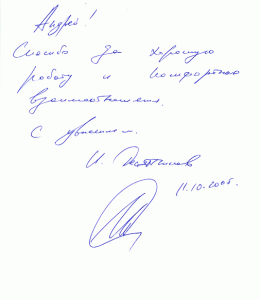 Андрей!
Спасибо за хорошую
работу и комфортные
взаимоотношения.
С уважением.
И.
11.10.2005г.